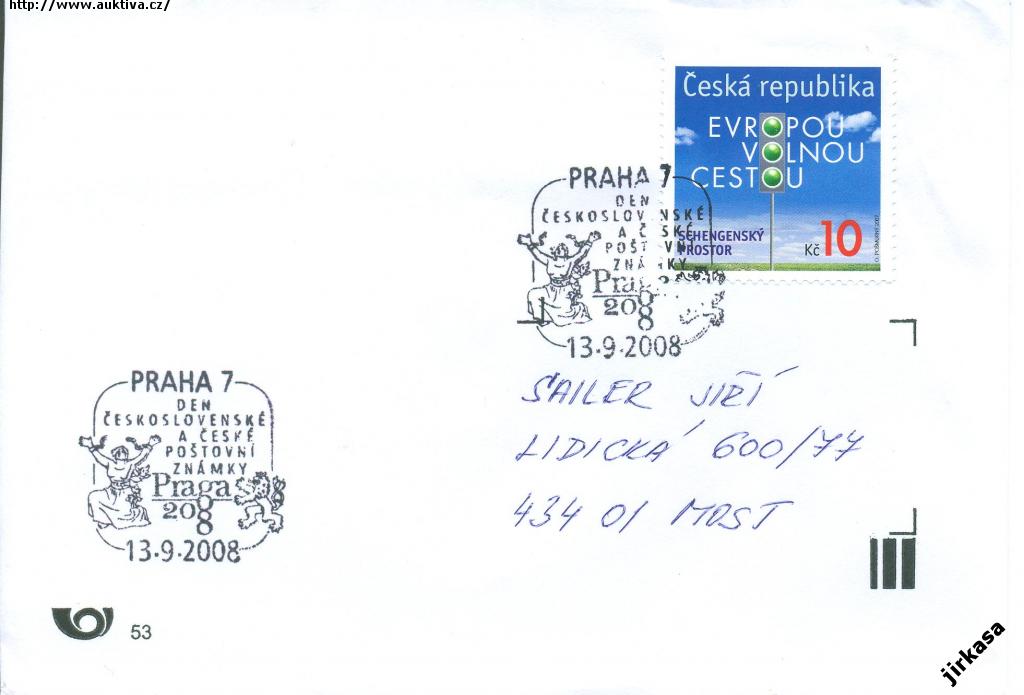 http://www.auktiva.cz/
Česká republika
EVROPOU
VOLNOU
CESTOU
SCHENGENSKÝ
PROSTOR
Kč 10
PRAHA 7
DEN
ČESKOSLOVENSKÉ
A ČESKÉ
POŠTOVNÍ
ZNÁMKY
Praga
2008
13.9.2008
SAILER JIŘÍ
LIDICKÁ 600/77
434 01 MOST
PRAHA 7
DEN
ČESKOSLOVENSKÉ
A ČESKÉ
POŠTOVNÍ
ZNÁMKY
Praga
2008
13.9.2008
53
jirkasa